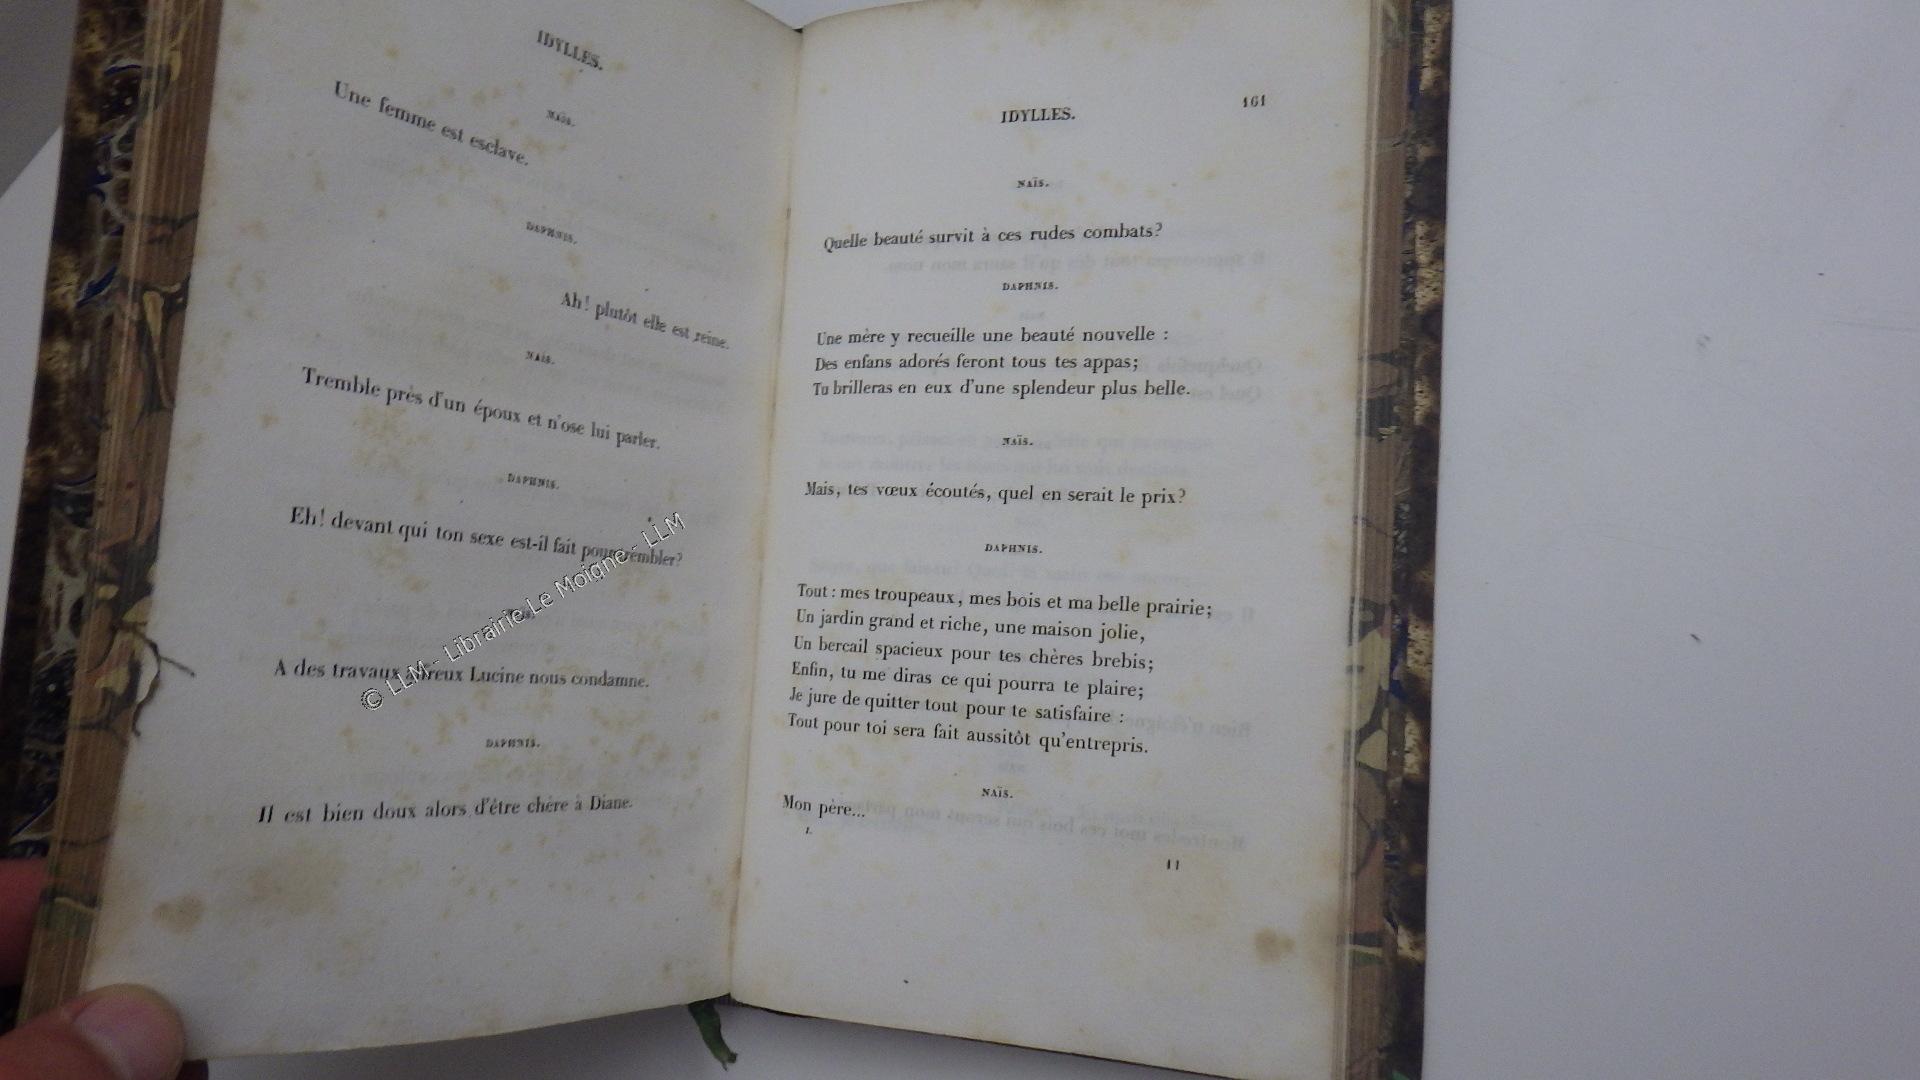 IDYLLES.
NAÏS.
Une femme est esclave.
DAPHNIS.
Ah! plutôt elle est reine.
NAÏS.
Tremble près d'un époux et n'ose lui parler.
DAPHNIS.
Eh! devant qui ton sexe est-il fait pour trembler?
A des travaux affreux Lucine nous condamne.
DAPHNIS.
Il est bien doux alors d'être chère à Diane.
© LLM - Librairie Le Moigne - LLM
IDYLLES.
161
NAÏS.
Quelle beauté survit à ces rudes combats?
DAPHNIS.
Une mère y recueille une beauté nouvelle :
Des enfans adorés feront tous tes appas;
Tu brilleras en eux d'une splendeur plus belle.
NAÏS.
Mais, tes vœux écoutés, quel en serait le prix?
DAPHNIS.
Tout : mes troupeaux, mes bois et ma belle prairie;
Un jardin grand et riche, une maison jolie,
Un bercail spacieux pour tes chères brebis;
Enfin, tu me diras ce qui pourra te plaire;
Je jure de quitter tout pour te satisfaire :
Tout pour toi sera fait aussitôt qu'entrepris.
NAÏS.
Mon père...
I.
11